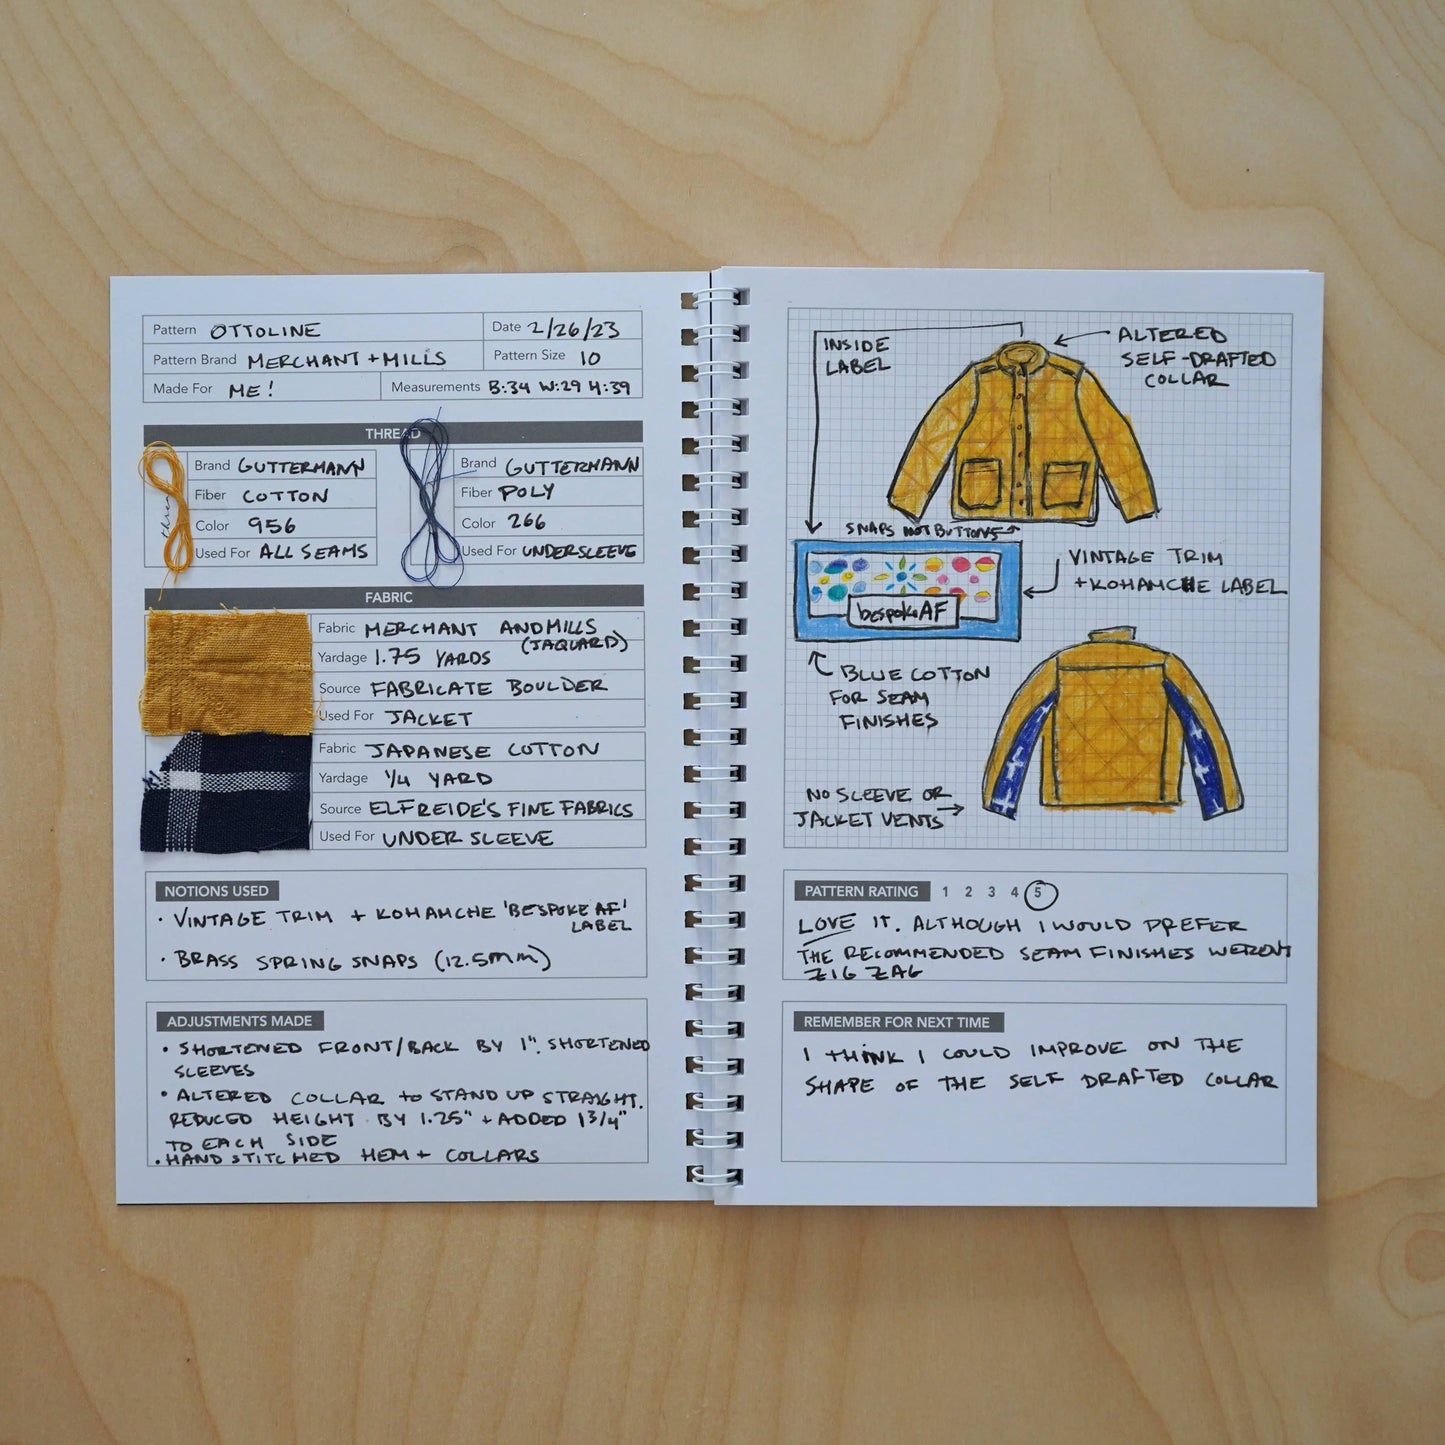 Pattern OTTOLINE
Date 2/26/23
Pattern Brand MERCHANT + MILLS
Pattern Size 10
Made For ME!
Measurements B:34 W:29 H:39
THREAD
Brand GUTTERMANN
Fiber COTTON
Color 956
Used For ALL SEAMS
Brand GUTTERMANN
Fiber POLY
Color 266
Used For UNDERSLEEVE
FABRIC
Fabric MERCHANT AND MILLS
(JAQUARD)
Yardage 1.75 YARDS
Source FABRICATE BOULDER
Used For JACKET
Fabric JAPANESE COTTON
Yardage 1/4 YARD
Source ELFREIDE'S FINE FABRICS
Used For UNDER SLEEVE
NOTIONS USED
• VINTAGE TRIM + KOHAMCHE 'BESPOKE AF'
LABEL
• BRASS SPRING SNAPS (12.5mm)
ADJUSTMENTS MADE
• SHORTENED FRONT/BACK BY 1". SHORTENED
SLEEVES
• ALTERED COLLAR to STAND UP STRAIGHT.
REDUCED HEIGHT BY 1.25" + ADDED 1 3/4"
TO EACH SIDE
• HAND STITCHED HEM + COLLARS
INSIDE
LABEL
ALTERED
SELF-DRAFTED
COLLAR
SNAPS NOT BUTTONS
bespoke AF
VINTAGE TRIM
+ KOHAMCHE LABEL
BLUE COTTON
FOR SEAM
FINISHES
NO SLEEVE OR
JACKET VENTS
PATTERN RATING 1 2 3 4 5
LOVE IT. ALTHOUGH I WOULD PREFER
THE RECOMMENDED SEAM FINISHES WEREN'T
ZIG ZAG
REMEMBER FOR NEXT TIME
I THINK I COULD IMPROVE ON THE
SHAPE OF THE SELF DRAFTED COLLAR